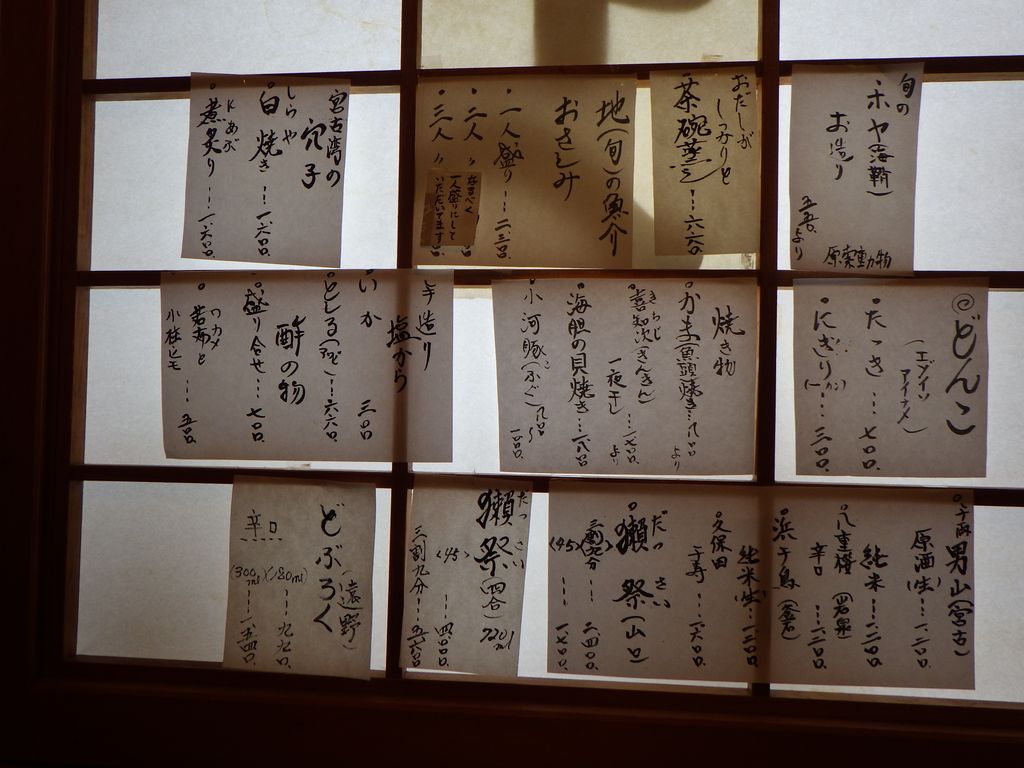 旬の
ホヤ(海鞘)
お造り
五五〇より
原索動物
おだしが
しっかりと
茶碗蒸し…六六〇
地(旬)の魚介
おさしみ
一人盛り…二、三〇〇
二人 〃
三人 〃
なるべく
一人盛りにして
いただいてます。
宮古湾の
穴子
しらや
白焼き…一、六〇〇
にあぶ
煮炙り…一、六〇〇
どんこ
(エゾイソ
アイナメ)
たたき…七〇〇
にぎり(一カン)…三〇〇
焼き物
かま(魚頭焼き)…八〇〇より
きちじ
喜知次(きんきん)
一夜干し…一、七〇〇より
海胆の貝焼き…一、八〇〇
小河豚(ふぐ)八〇〇〜
手造り
塩から
いか 三〇〇
としる
六六〇
酢の物
盛り合せ…七〇〇
ワカメ
若布と
小柱
五〇〇
千両男山(宮古)
原酒(生)…一、二〇〇
純米…一、二〇〇
八重桜(岩泉)
辛口…一、二〇〇
浜千鳥(釜石)
純米(生)…一、二〇〇
久保田
千寿…一、六〇〇
だっさい
獺祭(山口)
三割九分…二、四〇〇
(45)…一、七〇〇
だっさい
獺祭(四合)720ml
(45)…四、〇〇〇
三割九分…五、六〇〇
どぶろく(遠野)
辛口
(180ml)…九九〇
(300ml)…一、五四〇